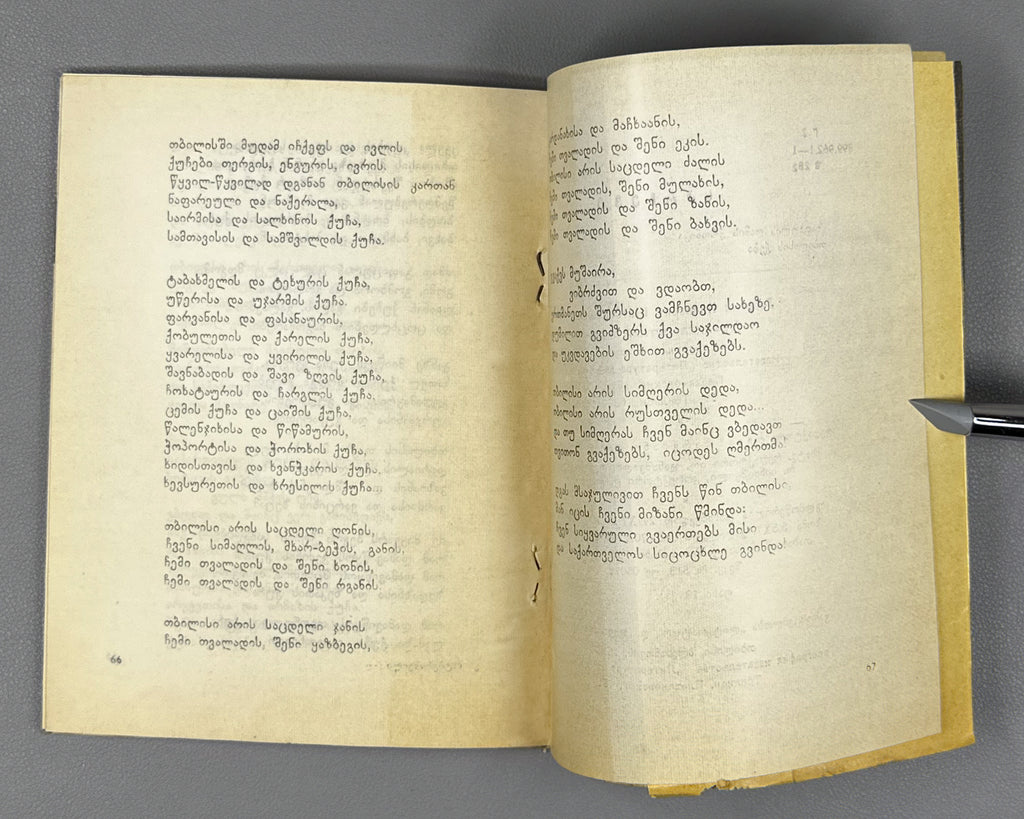 თბილისში მუდამ იჩქეფს და ივლის
ქუჩები თერგის, ენგურის, ივრის.
წყვილ-წყვილად დგანან თბილისის კართან
ნაფარეული და ნაქერალა,
საირმისა და სალხინოს ქუჩა,
სამთავისის და სამშვილდის ქუჩა.
ტაბახმელის და ტეხურის ქუჩა,
უწერისა და უჯარმის ქუჩა.
ფარვანისა და ფასანაურის,
ქობულეთის და ქარელის ქუჩა,
ყვარელისა და ყვირილის ქუჩა,
შავნაბადის და შავი ზღვის ქუჩა,
ჩოხატაურის და ჩარგლის ქუჩა,
ცემის ქუჩა და ცაიშის ქუჩა,
წალენჯიხისა და წიწამურის,
ჭოპორტისა და ჭოროხის ქუჩა,
ხიდისთავის და ხვანჭკარის ქუჩა,
ხევსურეთის და ხრესილის ქუჩა...
თბილისი არის საცდელი ღონის,
ჩვენი სიმაღლის, მხარ-ბეჭის, განის,
ჩემი თვალადის და შენი ხონის,
ჩემი თვალადის და შენი რგანის
თბილისი არის საცდელი ჯანის
ჩემი თვალადის, შენი ყაზბეგის,
66
და მაჩხაანის,
თვალადის და შენი ეკის.
არის საცდელი ძალის
თვალადის, შენი მულახის,
თვალადის და შენი ზანის,
თვალადის და შენი ბახვის.
მუშაირა,
ვიბრძვით და ვდაობთ,
შურსაც ვამჩნევთ სახეზე,
გვიმზერს ქვა საჯილდაო
და უკვდავების ეშხით გვაქეზებს.
თბილისი არის სიმღერის დედა,
თბილისი არის რუსთველის დედა...
და თუ სიმღერას ჩვენ მაინც ვბედავთ
თვითონ გვაქეზებს, იცოდეს ღმერთმა
დგას მსაჯულივით ჩვენს წინ თბილისი,
მან იცის ჩვენი მიზანი წმინდა:
ჩვენ სიყვარული გვაერთებს მისი
და საქართველოს სიცოცხლე გვინდა
67